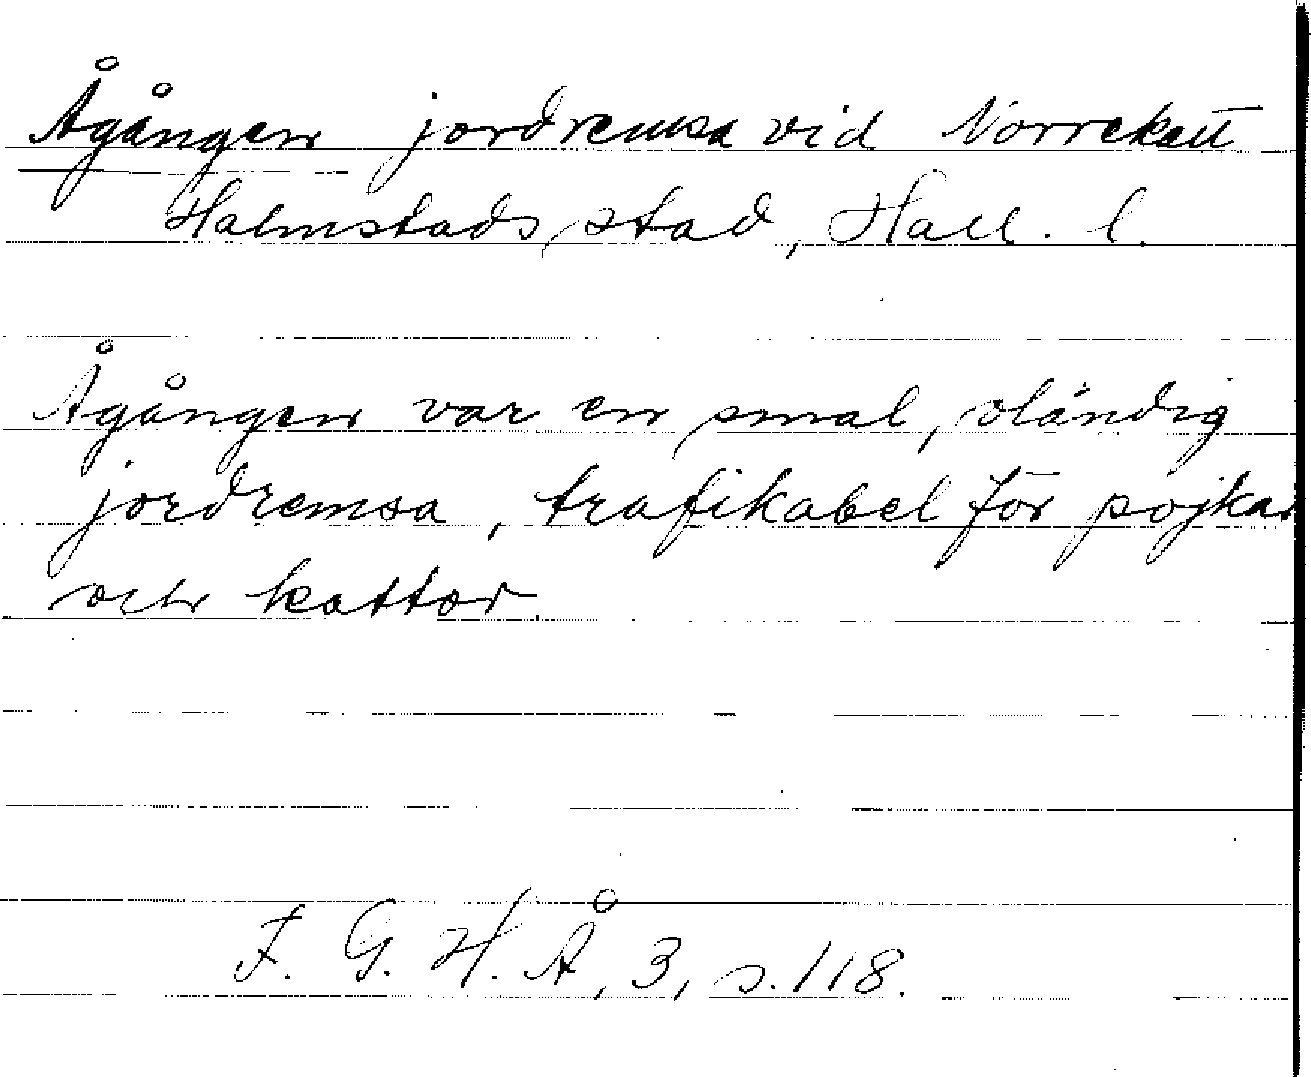 Ågången jordremsa vid Norrekatt
Halmstads stad, Hall. l.
Ågången var en smal, oländig
jordremsa, trafikabel för pojkar
och kattor.
F. G. H. Å, 3, s. 118.